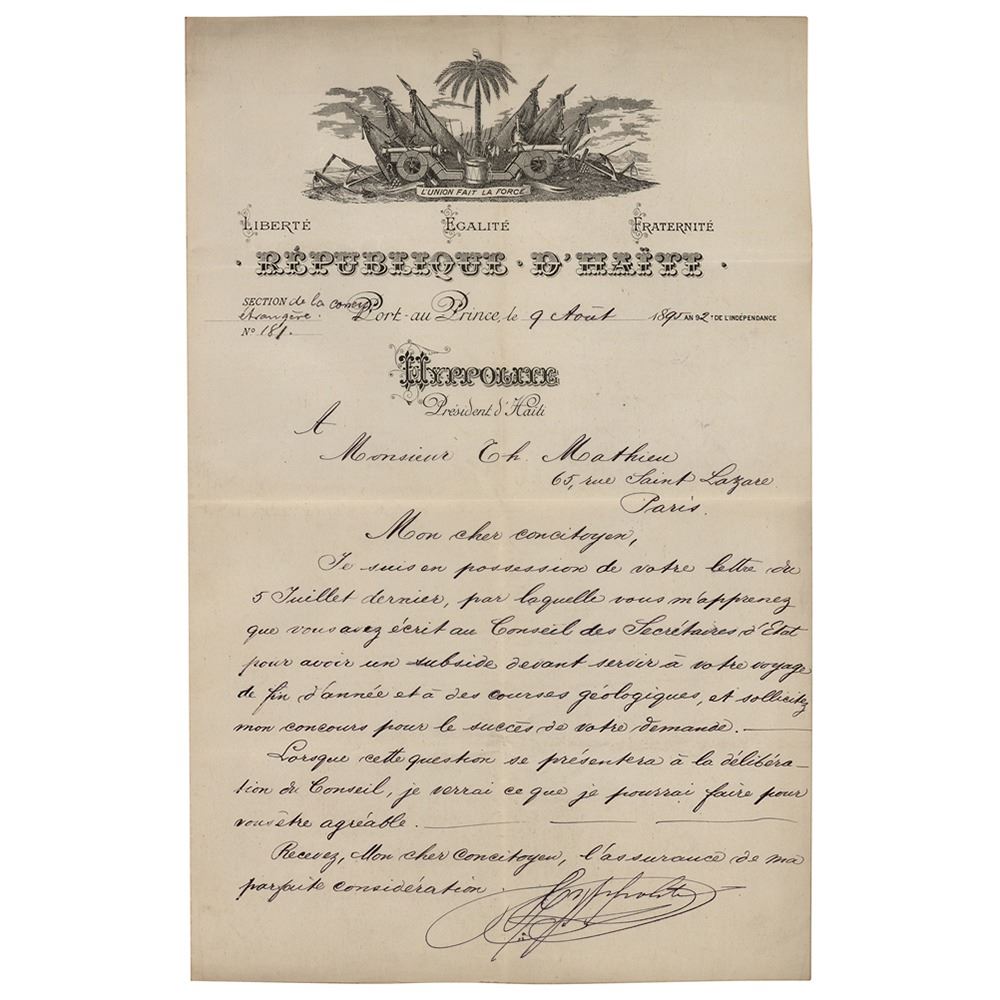 L'UNION FAIT LA FORCE
LIBERTÉ EGALITÉ FRATERNITÉ
RÉPUBLIQUE · D'HAÏTI
SECTION de la corresp
étrangère. Port-au-Prince, le 9 Août 1895 AN 92e DE L'INDÉPENDANCE
No 181.
HYPPOLITE
Président d'Haïti
A
Monsieur Th. Mathieu
65, rue Saint Lazare
Paris.
Mon cher concitoyen,
Je suis en possession de votre lettre du
5 Juillet dernier, par laquelle vous m'apprenez
que vous avez écrit au Conseil des Secrétaires d'Etat
pour avoir un subside devant servir à votre voyage
de fin d'année et à des courses géologiques, et sollicitez
mon concours pour le succès de votre demande.
Lorsque cette question se présentera à la délibéra-
tion du Conseil, je verrai ce que je pourrai faire pour
vous être agréable.
Recevez, Mon cher Concitoyen, l'assurance de ma
parfaite considération.
Hyppolite